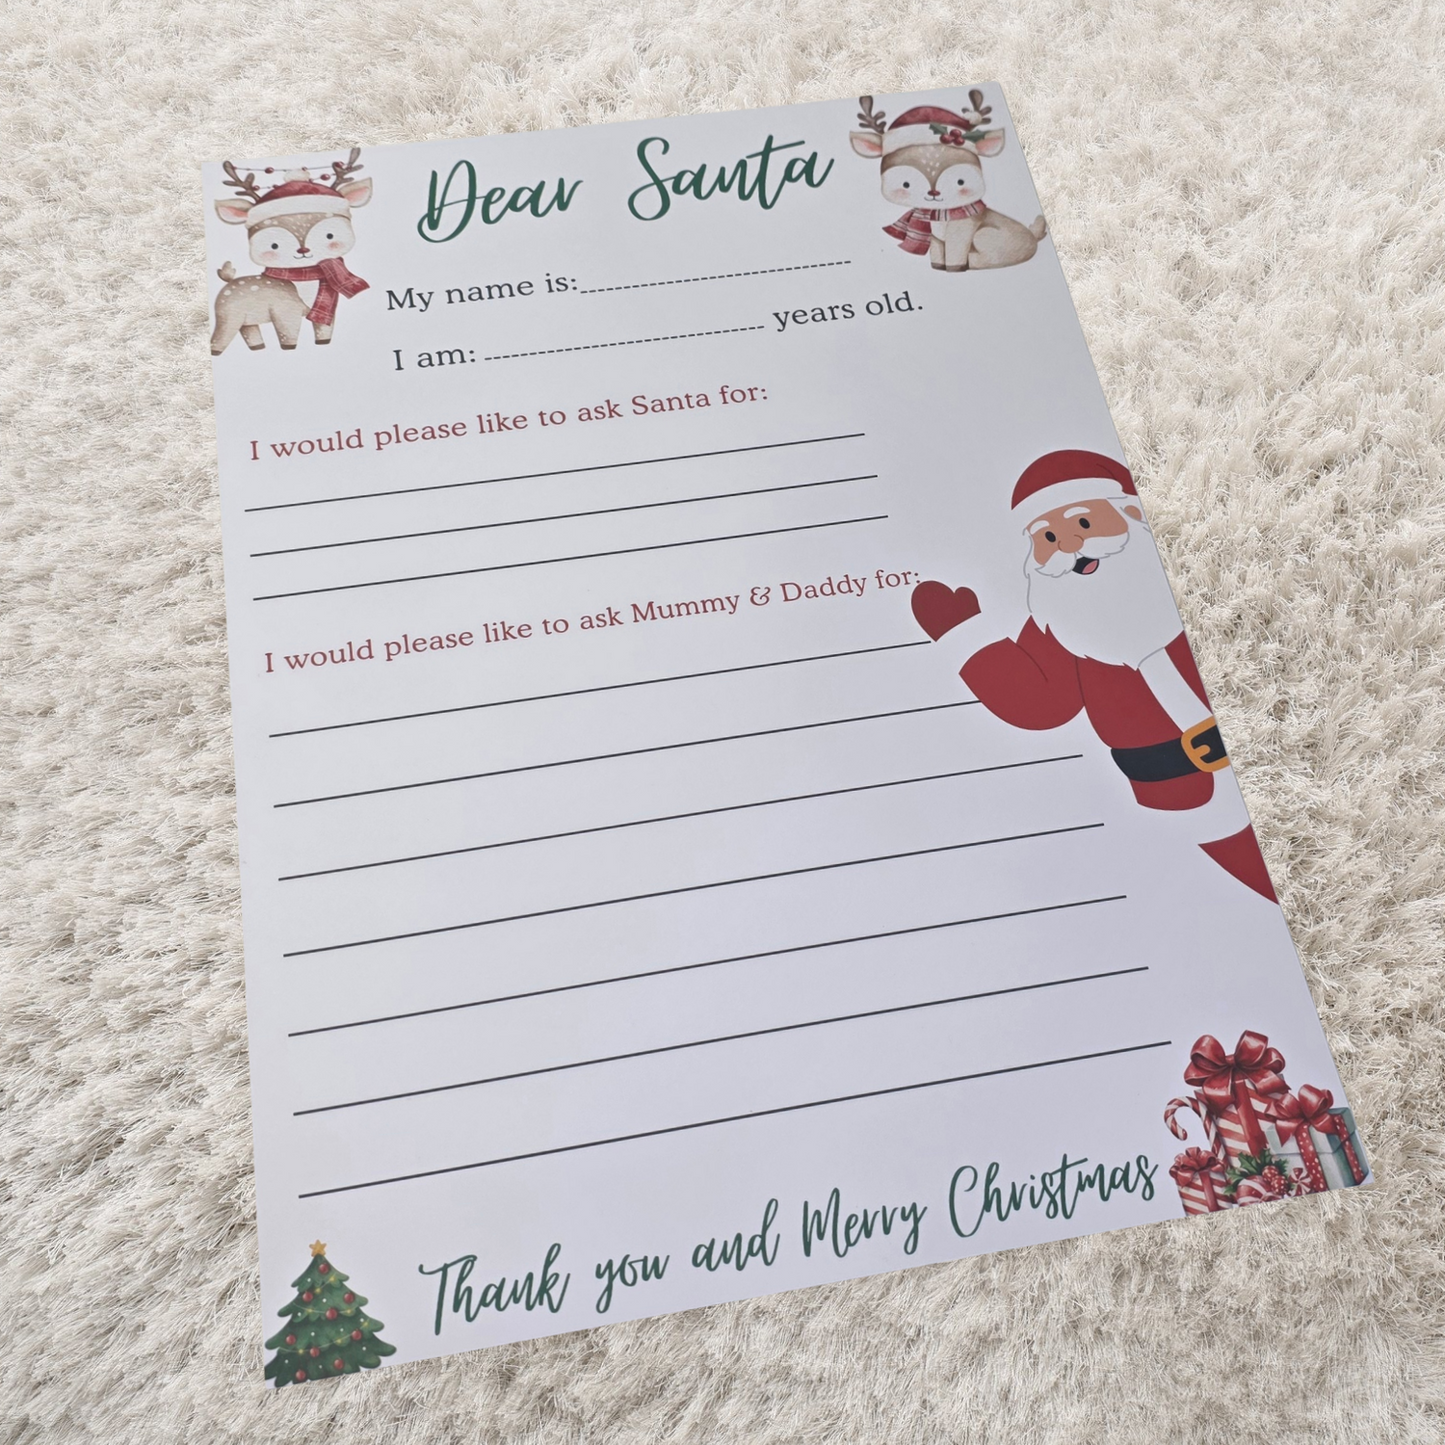 Dear Santa
My name is:
I am: years old.
I would please like to ask Santa for:
I would please like to ask Mummy & Daddy for:
Thank you and Merry Christmas